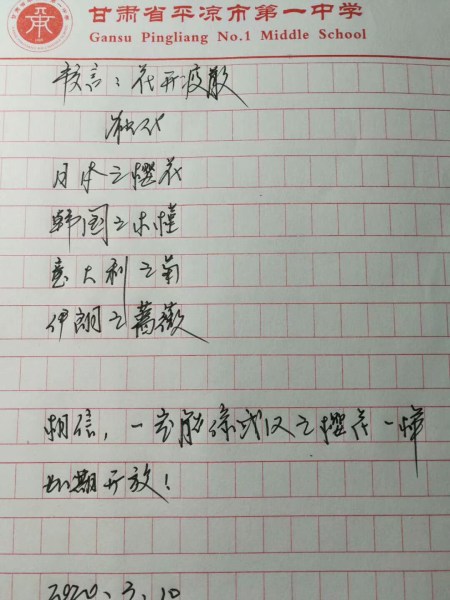 甘肃省平凉市第一中学
Gansu Pingliang No.1 Middle School
言：花开疫散
日本之樱花
韩国之木槿
意大利之菊
伊朗之蔷薇
相信，一定能像武汉之樱花一样
如期开放！
2020.3.10